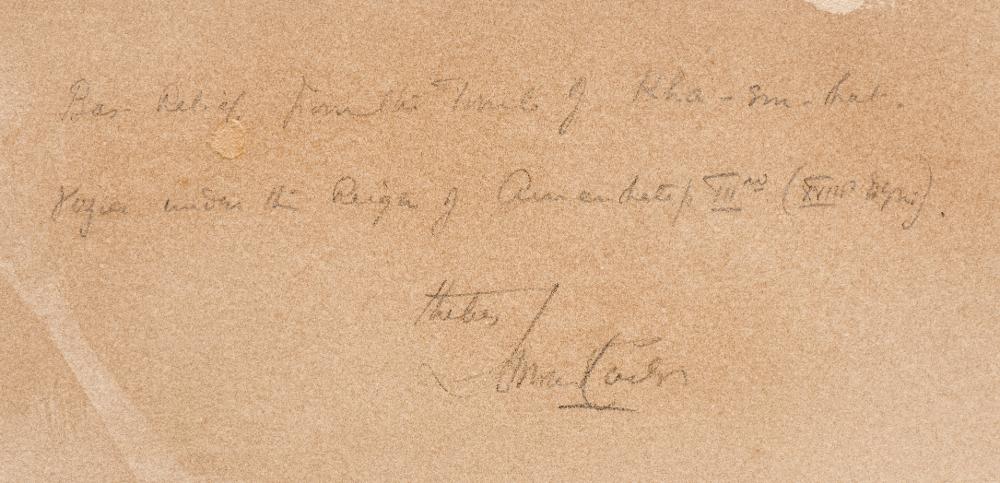 Bas Relief from the Tomb of Kha-em-hat.
Vizier under the Reign of Amenhotep III rd (XVIII Dyn.).
Thebes
Howard Carter